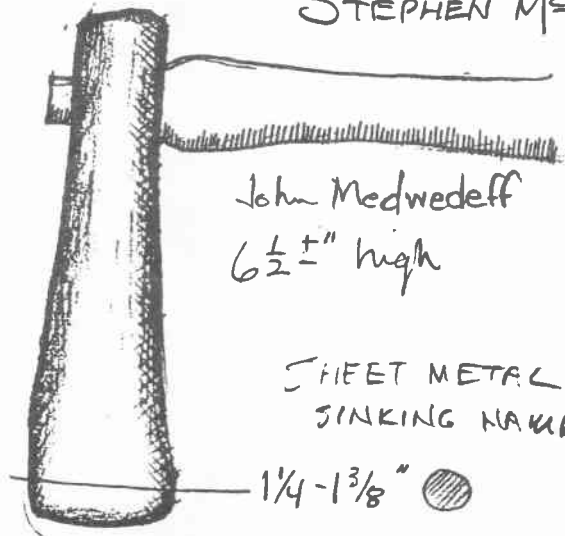 STEPHEN Mc
John Medwedeff
6 1/2 ±" high
SHEET METAL
SINKING
1 1/4 - 1 3/8"